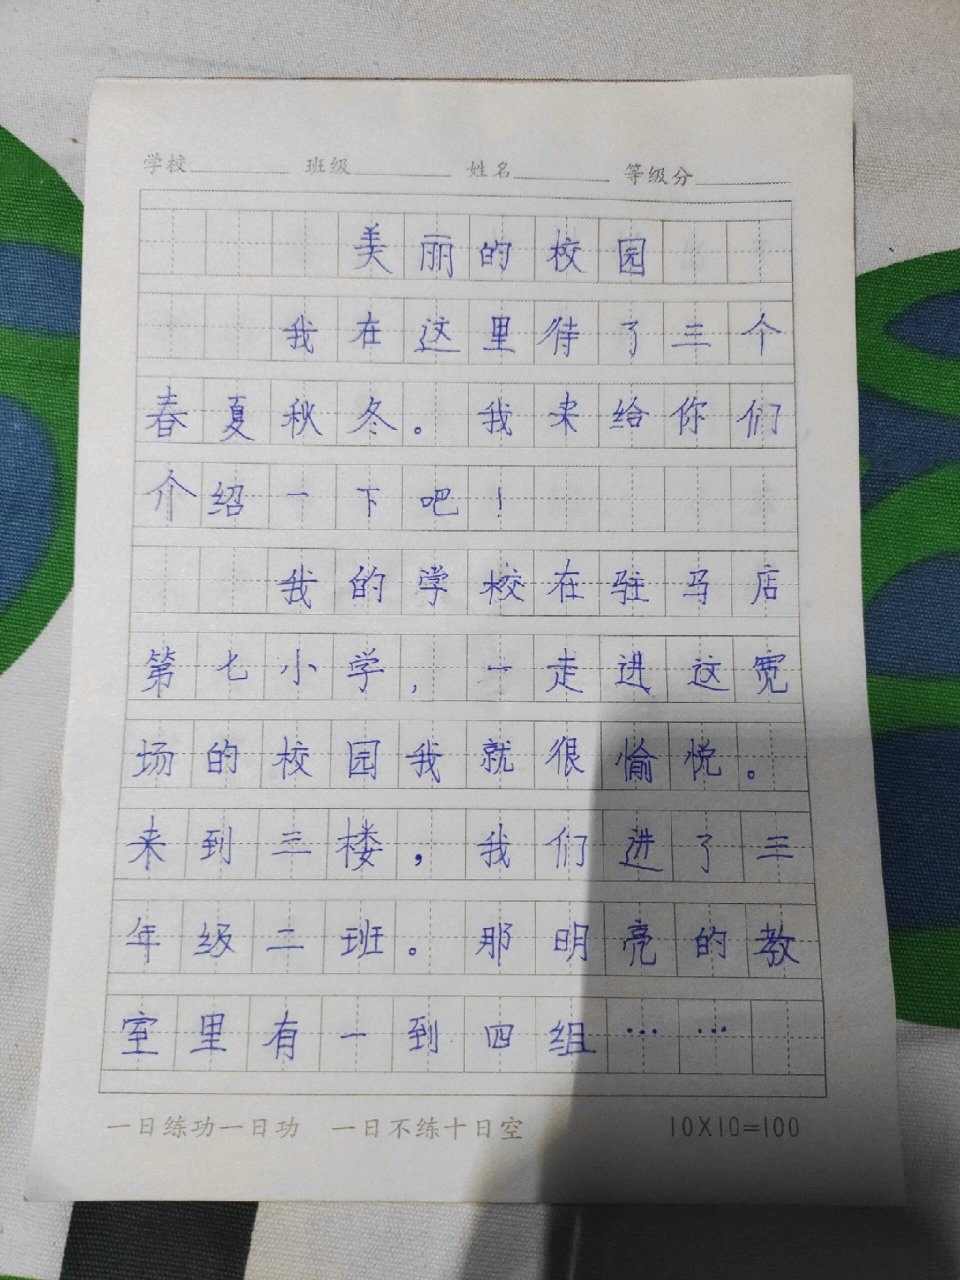 学校 班级 姓名 等级分
美丽的校园
我在这里待了三个
春夏秋冬。我来给你们
介绍一下吧！
我的学校在驻马店
第七小学，一走进这宽
场的校园我就很愉悦。
来到三楼，我们进了三
年级二班。那明亮的教
室里有一到四组……
一日练功一日功 一日不练十日空 10X10=100